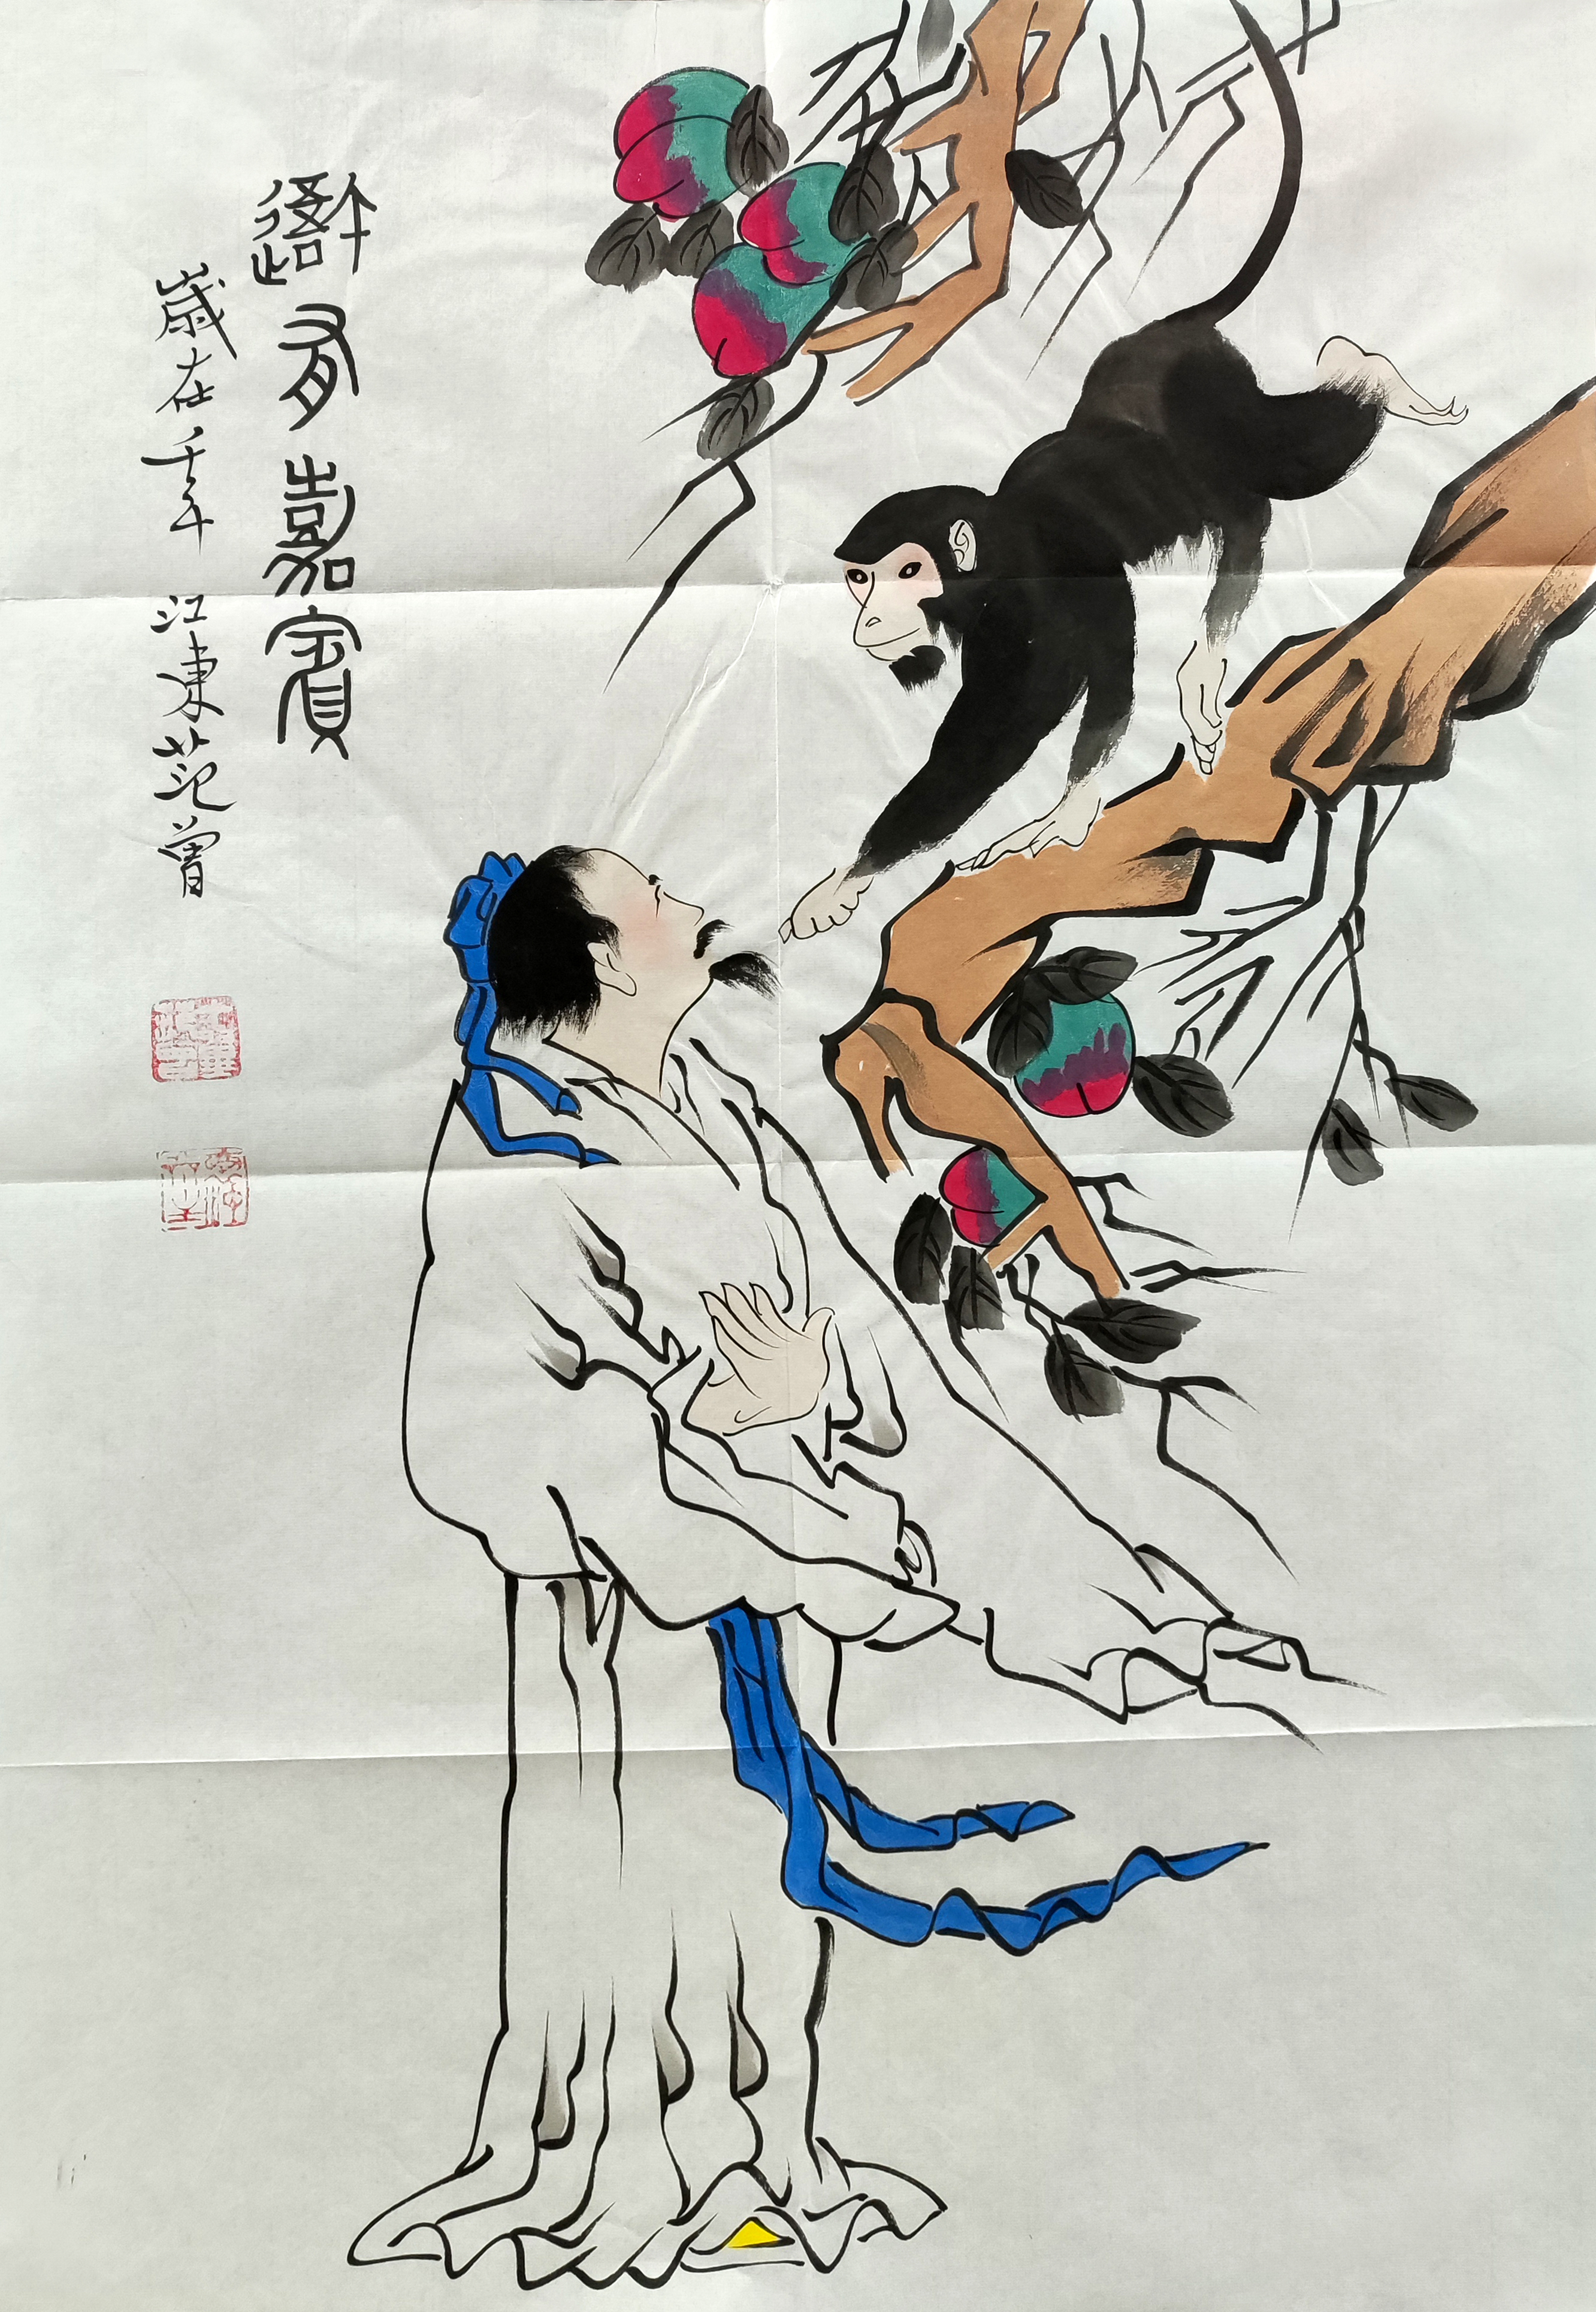 吾有嘉賓
歲在壬午 江東范曾